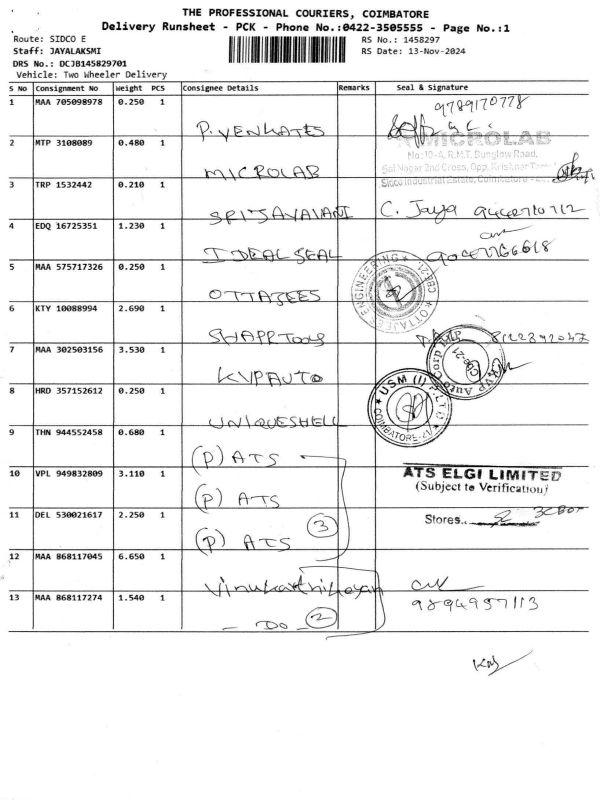 THE PROFESSIONAL COURIERS, COIMBATORE
Delivery Runsheet - PCK - Phone No.:0422-3505555 - Page No.:1
Route: SIDCO E
RS No.: 1458297
Staff: JAYALAKSMI
RS Date: 13-Nov-2024
DRS No.: DCJB145829701
Vehicle: Two Wheeler Delivery
S No Consignment No Weight PCS Consignee Details Remarks Seal & Signature
1 MAA 705098978 0.250 1 P. VENKATES 9789170778
2 MTP 3108089 0.480 1 MICROLAB
MICROLAB
No:10-A, R.M.T. Bunglow Road,
Sai Nagar 2nd Cross, Opp. Krishna
Sidco Industrial Estate, Coimbatore
3 TRP 1532442 0.210 1 SRIJAYAVANI C. Jaya
4 EDQ 16725351 1.230 1 IDEAL SEAL
5 MAA 575717326 0.250 1 OTTAJEES
OTTAJEE ENGINEERING CBE-21
6 KTY 10088994 2.690 1 SHARP Tools
7 MAA 302503156 3.530 1 KVP AUTO
KVP Auto Corp LLP Cbe-21
8 HRD 357152612 0.250 1 UNIQUESHELL
USM (I) P LTD COIMBATORE-21
9 THN 944552458 0.680 1 (P) ATS
10 VPL 949832809 3.110 1 (P) ATS
ATS ELGI LIMITED
(Subject to Verification)
11 DEL 530021617 2.250 1 (P) ATS 3
Stores. 3CBOT
12 MAA 868117045 6.650 1 Vinukarthikeyan
13 MAA 868117274 1.540 1 - DO - 2 9894957113